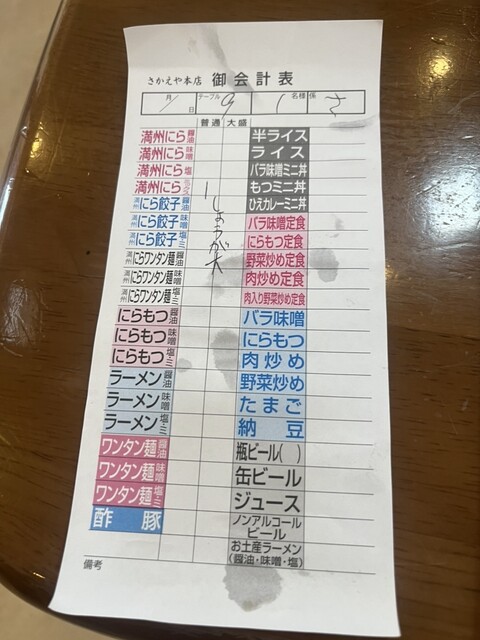 さかえや本店 御会計表
月 / 日 テーブル 9 1 名様 係 さ
普通 大盛
満州にら 醤油
満州にら 味噌
満州にら 塩
満州にら
満州 にら餃子 醤油
満州 にら餃子 味噌
満州 にら餃子 塩・ミ
満州 にらワンタン麺 醤油
満州 にらワンタン麺 味噌
満州 にらワンタン麺 塩・ミ
にらもつ 醤油
にらもつ 味噌
にらもつ 塩・ミ
ラーメン 醤油
ラーメン 味噌
ラーメン 塩・ミ
ワンタン麺 醤油
ワンタン麺 味噌
ワンタン麺 塩・ミ
酢豚
しょうが大
半ライス
ライス
バラ味噌ミニ丼
もつミニ丼
ひえカレーミニ丼
バラ味噌定食
にらもつ定食
野菜炒め定食
肉炒め定食
肉入り野菜炒め定食
バラ味噌
にらもつ
肉炒め
野菜炒め
たまご
納豆
瓶ビール( )
缶ビール
ジュース
ノンアルコール
ビール
お土産ラーメン
(醤油・味噌・塩)
備考